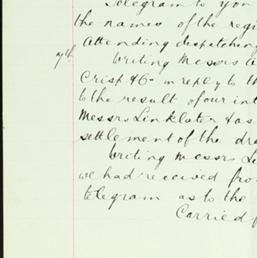 Telegram to you
the names of the regi
attending despatching
7th Writing Messrs A
Crisp & Co in reply to th
to the result of our int
Messrs Linklater & as
settlement of the dra
Writing Messrs Li
we had received fro
telegram as to the
Carried f